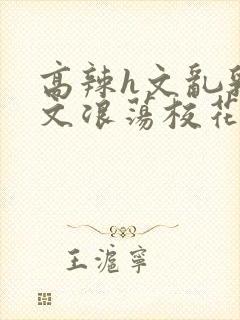 高辣h文乱乳
文浪荡校花
王滬寧